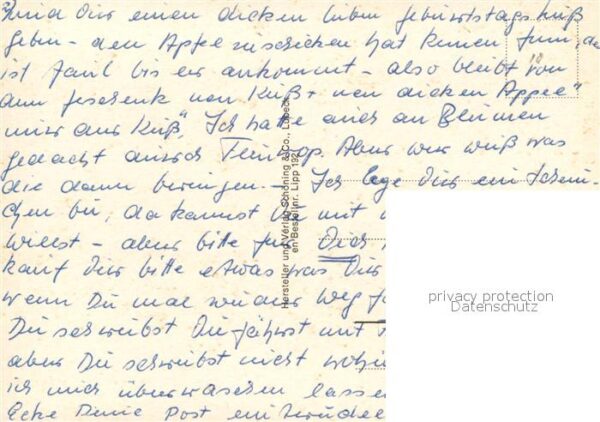 Und Dir einen dicken lieben Geburtstagskuß
geben - den Apfel zu schicken hat keinen Sinn, der
ist faul bis er ankommt - also bleibt von
dem Geschenk "nen Kuß + nen dicken Appel"
nur der Kuß". Ich hatte auch an Blumen
gedacht durch Fleurop. Aber wer weiß was
die dann bringen. - Ich lege Dir ein Schein-
chen bei, da kannst Du mit
willst - aber bitte für Dich
kauf Dir bitte etwas was Dir
wenn Du mal wieder weg
Du schreibst Du fährst mit
aber Du schreibst nicht
ich mich überraschen lassen
Ecke Deine Post
Hersteller und Verlag Schöning & Co., Lübeck
en Bestellnr. Lipp 192
privacy protection
Datenschutz